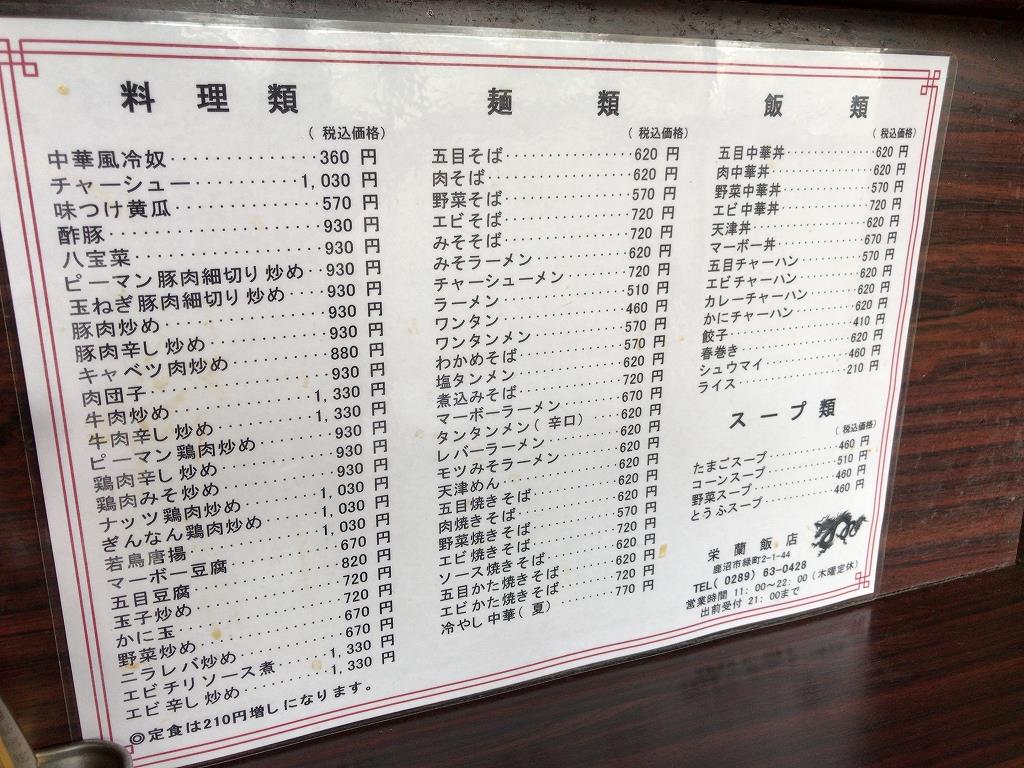 料理類
(税込価格)
中華風冷奴・・・・・・・・・・360 円
チャーシュー・・・・・・・・1,030 円
味つけ黄瓜・・・・・・・・・・570 円
酢豚・・・・・・・・・・930 円
八宝菜・・・・・・・・・・930 円
ピーマン豚肉細切り炒め・・930 円
玉ねぎ豚肉細切り炒め・・・930 円
豚肉炒め・・・・・・・・・・930 円
豚肉辛し炒め・・・・・・・・930 円
キャベツ肉炒め・・・・・・・880 円
肉団子・・・・・・・・・・930 円
牛肉炒め・・・・・・・・1,330 円
牛肉辛し炒め・・・・・・1,330 円
ピーマン鶏肉炒め・・・・・930 円
鶏肉辛し炒め・・・・・・・・930 円
鶏肉みそ炒め・・・・・・・・930 円
ナッツ鶏肉炒め・・・・・1,030 円
ぎんなん鶏肉炒め・・・・1,030 円
若鳥唐揚・・・・・・・・1,030 円
マーボー豆腐・・・・・・・・670 円
五目豆腐・・・・・・・・・・820 円
玉子炒め・・・・・・・・・・720 円
かに玉・・・・・・・・・・720 円
野菜炒め・・・・・・・・・・670 円
ニラレバ炒め・・・・・・・・670 円
エビチリソース煮・・・・1,330 円
エビ辛し炒め・・・・・・1,330 円
◎定食は210円増しになります。
麺類
(税込価格)
五目そば・・・・・・・・・・620 円
肉そば・・・・・・・・・・620 円
野菜そば・・・・・・・・・・570 円
エビそば・・・・・・・・・・720 円
みそそば・・・・・・・・・・720 円
みそラーメン・・・・・・・・620 円
チャーシューメン・・・・・720 円
ラーメン・・・・・・・・・・510 円
ワンタン・・・・・・・・・・460 円
ワンタンメン・・・・・・・・570 円
わかめそば・・・・・・・・・570 円
塩タンメン・・・・・・・・・620 円
煮込みそば・・・・・・・・・720 円
マーボーラーメン・・・・・670 円
タンタンメン(辛口)・・・620 円
レバーラーメン・・・・・・・620 円
モツみそラーメン・・・・・620 円
天津めん・・・・・・・・・・620 円
五目焼きそば・・・・・・・・620 円
肉焼きそば・・・・・・・・・620 円
野菜焼きそば・・・・・・・・570 円
エビ焼きそば・・・・・・・・720 円
ソース焼きそば・・・・・・・620 円
五目かた焼きそば・・・・・620 円
エビかた焼きそば・・・・・720 円
冷やし中華(夏)・・・・・770 円
飯類
(税込価格)
五目中華丼・・・・・・・・・620 円
肉中華丼・・・・・・・・・・620 円
野菜中華丼・・・・・・・・・570 円
エビ中華丼・・・・・・・・・720 円
天津丼・・・・・・・・・・620 円
マーボー丼・・・・・・・・・670 円
五目チャーハン・・・・・・・570 円
エビチャーハン・・・・・・・620 円
カレーチャーハン・・・・・620 円
かにチャーハン・・・・・・・620 円
餃子・・・・・・・・・・410 円
春巻き・・・・・・・・・・620 円
シュウマイ・・・・・・・・・460 円
ライス・・・・・・・・・・210 円
スープ類
(税込価格)
たまごスープ・・・・・・・・460 円
コーンスープ・・・・・・・・510 円
野菜スープ・・・・・・・・・460 円
とうふスープ・・・・・・・・460 円
栄蘭飯店
鹿沼市緑町2-1-44
TEL(0289)63-0428
営業時間 11:00〜22:00(木曜定休)
出前受付 21:00まで